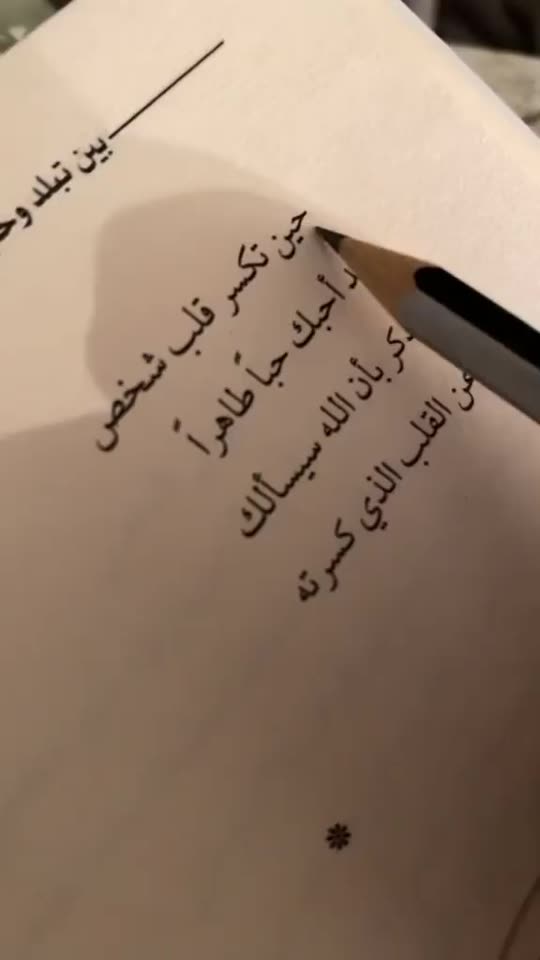 بين تبلد
حين تكسر قلب شخص
أحبك حباً طاهراً
بأن الله سيسألك
عن القلب الذي كسرته
*